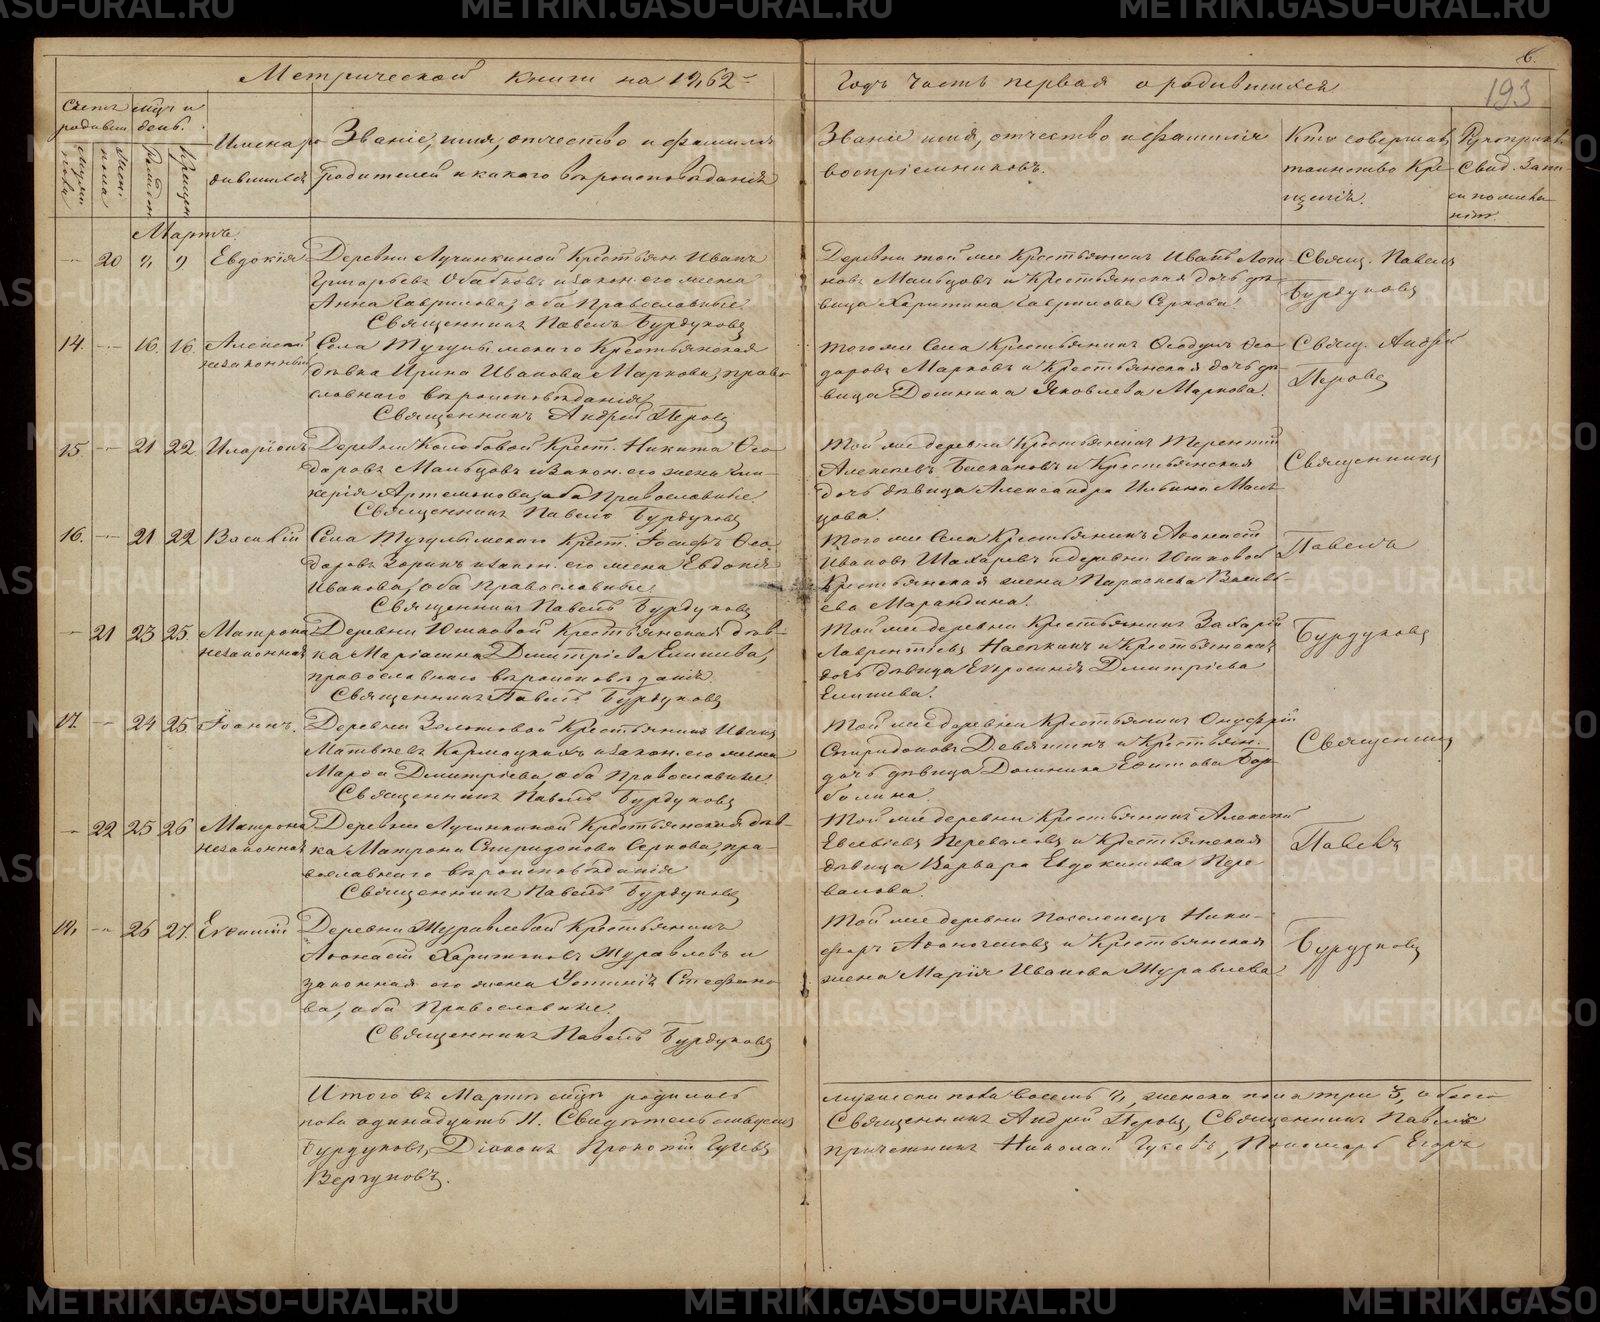 Метрической книги на 1862й
Годъ часть первая о родившихся
6.
193
Счетъ родивш.
Мѣс. и день.
Имена родившихся
Званіе, имя, отчество и фамилія
родителей и какого вѣроисповѣданія
Званіе имя, отчество и фамилія
воспріемниковъ.
Кто совершалъ
таинство Кре-
щенія.
Рукоприкл.
Свид. запи-
си по жела-
нію.
Мартъ.
20 8 9 Евдокія
Деревни Лучинкиной Крестьян. Иванъ
Григорьевъ Обабковъ и закон. его жена
Анна Гаврилова, оба Православные
Священникъ Павелъ Бурдуковъ
Деревни той же Крестьянинъ Иванъ Логи-
новъ Мальцовъ и Крестьянская дочь дѣ-
вица Харитина Гаврилова Серкова.
Свящ. Павелъ
Бурдуковъ
14. 16. 16. Алексей
незаконный
Села Тугулымскаго Крестьянская
дѣвка Ирина Иванова Маркова, право-
славнаго вѣроисповѣданія
Священникъ Андрей Перовъ
Того же Села Крестьянинъ Ѳеодулъ Ѳео-
доровъ Марковъ и Крестьянская дочь дѣ-
вица Домника Яковлева Маркова.
Свящ. Андрей
Перовъ
15 21 22 Иларіонъ
Деревни Колобовой Крест. Никита Ѳео-
доровъ Мальцовъ и закон. его жена Гли-
керія Артемонова, оба Православные
Священникъ Павелъ Бурдуковъ
Той же деревни Крестьянинъ Терентій
Алексеевъ Баскановъ и Крестьянская
дочь дѣвица Александра Ильина Маль-
цова.
Священникъ
16. 21 22 Василій
Села Тугулымскаго Крест. Іосифъ Ѳео-
доровъ Зоринъ и закон. его жена Евдокія
Иванова, оба Православные
Священникъ Павелъ Бурдуковъ
Того же Села Крестьянинъ Аѳонасій
Ивановъ Шахаревъ и деревни Юшковой
Крестьянская жена Параскева Василь-
ева Марандина.
Павелъ
21 23 25. Матрона
незаконная
Деревни Юшковой Крестьянская дѣв-
ка Маріамна Дмитріева Елишева,
православнаго вѣроисповѣданія.
Священникъ Павелъ Бурдуковъ
Той же деревни Крестьянинъ Захарій
Лаврентіевъ Насѣкинъ и Крестьянская
дочь дѣвица Евфросинія Дмитріева
Елишева.
Бурдуковъ
17. 24 25 Іоаннъ.
Деревни Золотовой Крестьянинъ Иванъ
Матвѣевъ Кармацкихъ и закон. его жена
Марѳа Дмитріева, оба Православные
Священникъ Павелъ Бурдуковъ
Той же деревни Крестьянинъ Онуфрій
Спиридоновъ Девятинъ и Крестьян.
дочь дѣвица Домника Ефимова Бар-
балина.
Священникъ
22 25 26 Матрона
незаконная
Деревни Лучинкиной Крестьянская дѣв-
ка Матрона Спиридонова Серкова, пра-
вославнаго вѣроисповѣданія
Священникъ Павелъ Бурдуковъ
Той же деревни Крестьянинъ Алексѣй
Евсевіевъ Переваловъ и Крестьянская
дѣвица Варвара Евдокимова Пере-
валова.
Павелъ
18. 26 27. Евѳимій
Деревни Журавлевой Крестьянинъ
Аѳонасій Харитоновъ Журавлевъ и
законная его жена Устинія Стефано-
ва, оба Православные.
Священникъ Павелъ Бурдуковъ
Той же деревни Поселенецъ Ники-
форъ и Крестьянская
жена Марія Иванова Журавлева
Бурдуковъ
Итого въ Мартѣ мѣсяцѣ родилось
мужеска пола восемь 8, женска пола три 3, а всего
пола одинадцать 11. Свидѣтельствуемъ
Священникъ Андрей Перовъ, Священникъ Павелъ
Бурдуковъ, Діаконъ Прокопій Гусевъ
причетникъ Николай Гусевъ, Пономарь Егоръ
Вергуновъ.